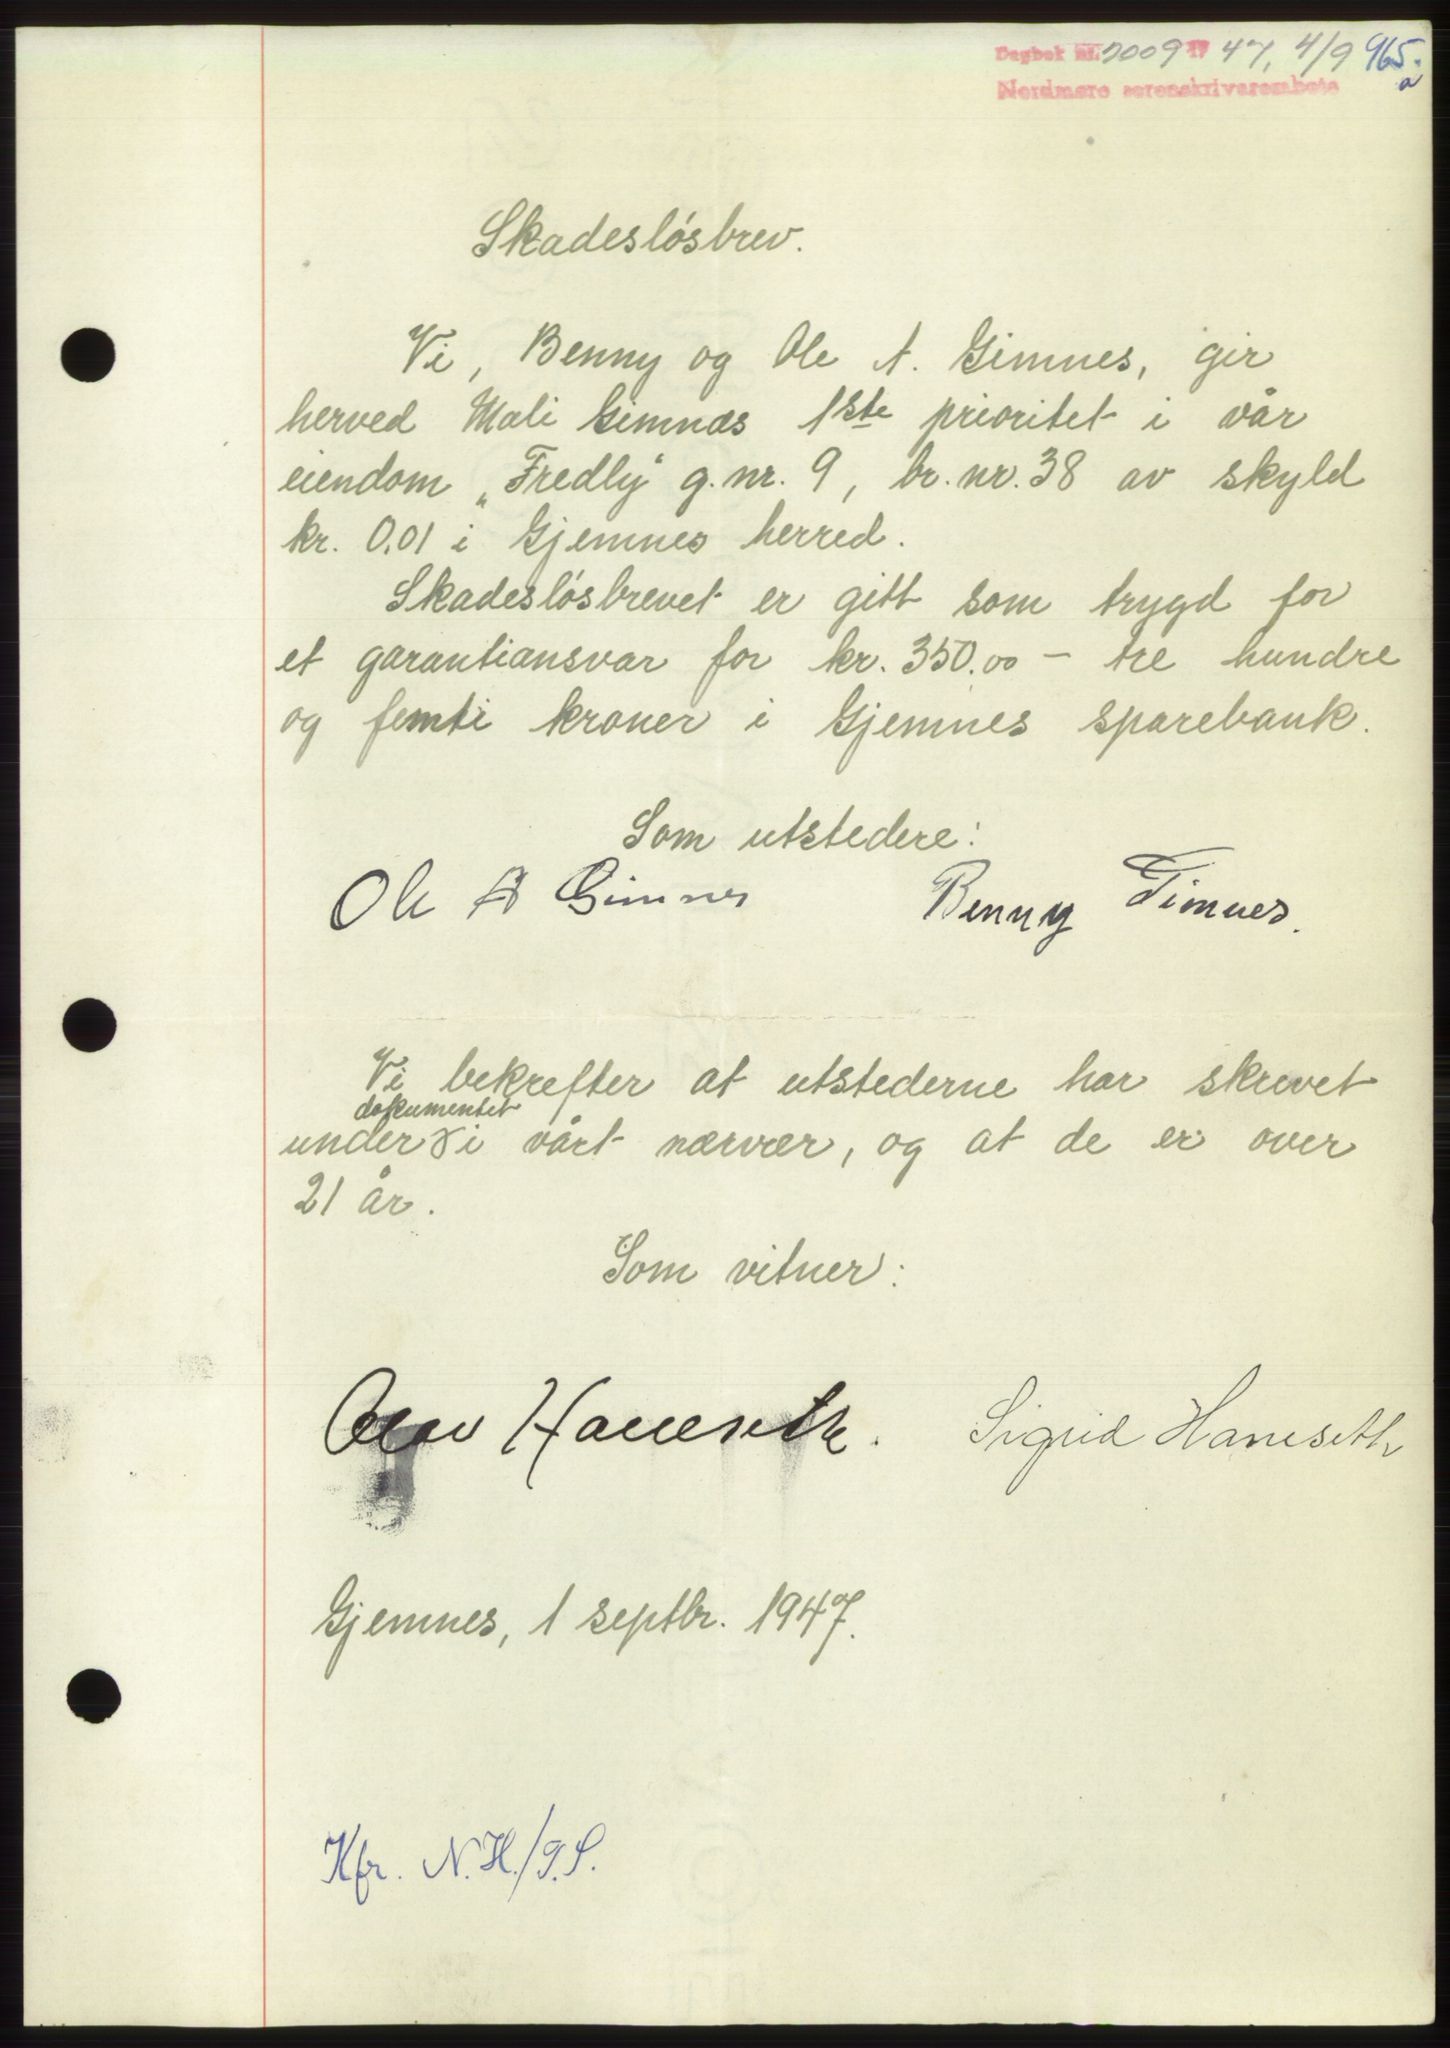 Dagbok nr. 2009 19 47, 4/9 965.
a
Nordmøre sorenskrivarembete
Skadesløsbrev.
Vi, Benny og Ole A. Gimnes, gir
herved Mali Gimnes 1ste prioritet i vår
eiendom „Fredly" g.nr. 9, br.nr. 38 av skyld
kr. 0,01 i Gjemnes herred.
Skadesløsbrevet er gitt som trygd for
et garantiansvar for kr. 350.00 – tre hundre
og femti kroner i Gjemnes sparebank.
Som utstedere:
Ole A Gimnes Benny Gimnes.
Vi bekrefter at utstederne har skrevet
dokumentet
under i vårt nærvær, og at de er over
21 år.
Som vitner:
Olav Haneseth. Sigrid Haneseth
Gjemnes, 1 septbr. 1947.
Kfr. N.H./G.S.